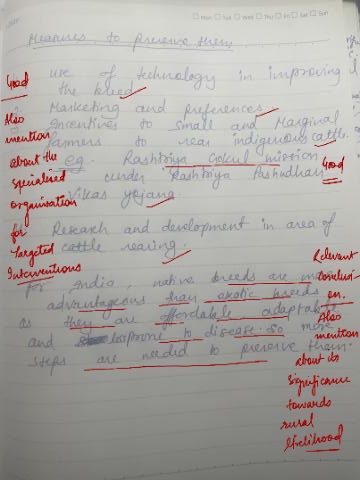 Mon Tue Wed Thu Fri Sat Sun
Measures to preserve them
Good
use of technology in improving
the breed
Marketing and preferences
Incentives to small and Marginal
farmers to rear indigenous cattle.
eg. Rashtriya Gokul mission
under Rashtriya Pashudhan
Vikas yojana
Good
Also
mention
about the
specialized
organisation
for
Targeted
Interventions
Research and development in area of
cattle rearing.
for India, native breeds are more
advantageous than exotic breeds
as they are affordable, adaptable
and less prone to disease. So more
steps are needed to preserve them.
Relevant
conclusi-
on.
Also
mention
about its
significance
towards
rural
livelihood